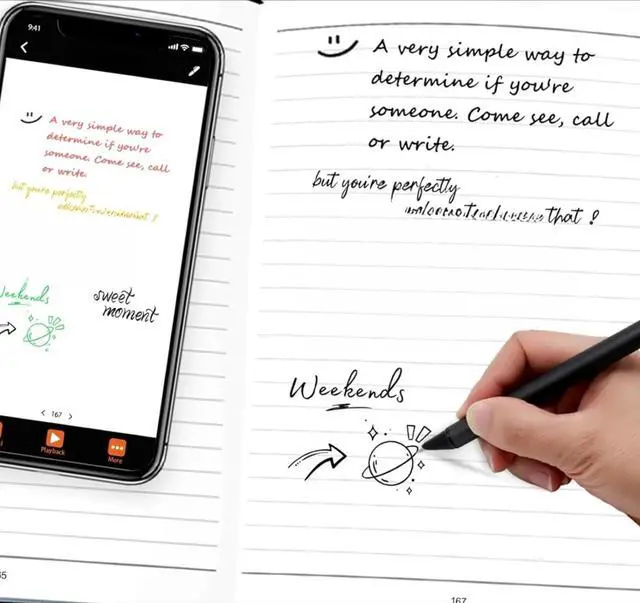 9:41
A very simple way to
determine if you're
someone. Come see, call
or write.
but you're perfectly
that !
Weekends
sweet
moment
< 167 >
Playback
More
A very simple way to
determine if you're
someone. Come see, call
or write.
but you're perfectly
that !
Weekends
167